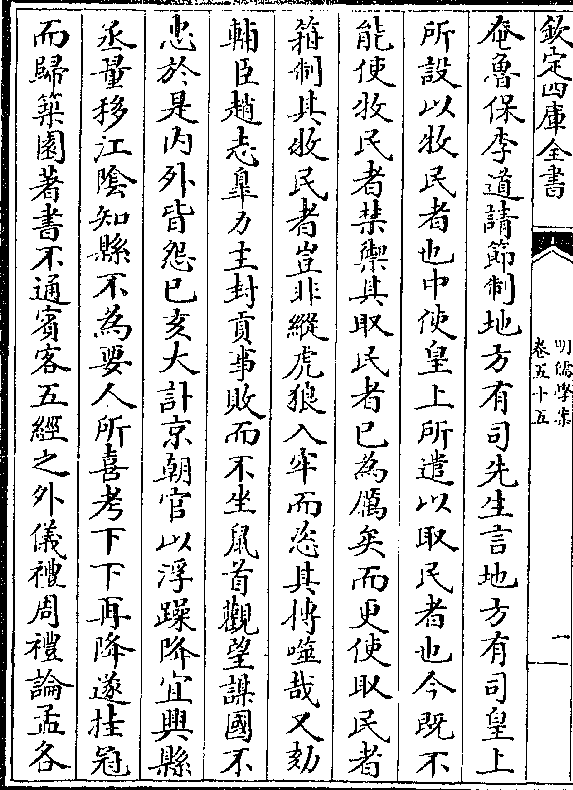 欽定四庫全書
明儒學案
卷五十五
一
奄魯保李道請節制地方有司先生言地方有司皇上
所設以牧民者也中使皇上所遣以取民者也今既不
能使牧民者禁禦其取民者已為厲矣而更使取民者
箝制其牧民者豈非縱虎狼入牢而恣其摶噬哉又劾
輔臣趙志臯力主封貢事敗而不坐鼠首觀望謀國不
忠於是内外皆怨已亥大計京朝官以浮躁降宜興縣
丞量移江陰知縣不為要人所喜考下下再降遂挂冠
而歸築園著書不通賓客五經之外儀禮周禮論孟各